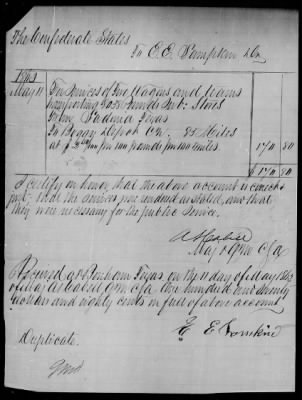 The Confederate States
To E.E. Tompkins Dr.
1863
May 11 For Services of Two Wagons and Teams
transporting lbs Sub: Stores
from Ladonia Texas
to Boggy Depot C.N. 85 Miles
at per 100 pounds per 100 miles. 170 80
$ 170 80
I certify on honor that the above account is correct &
just; that the services were rendered as stated, and that
they were necessary for the public service.
Maj & QM CSA
Received at Bonham Texas on the 11 day of May 1863
of Maj QM CSA One hundred and Seventy
Dollars and eighty cents in full of above account
E. E. Tompkins
Duplicate.